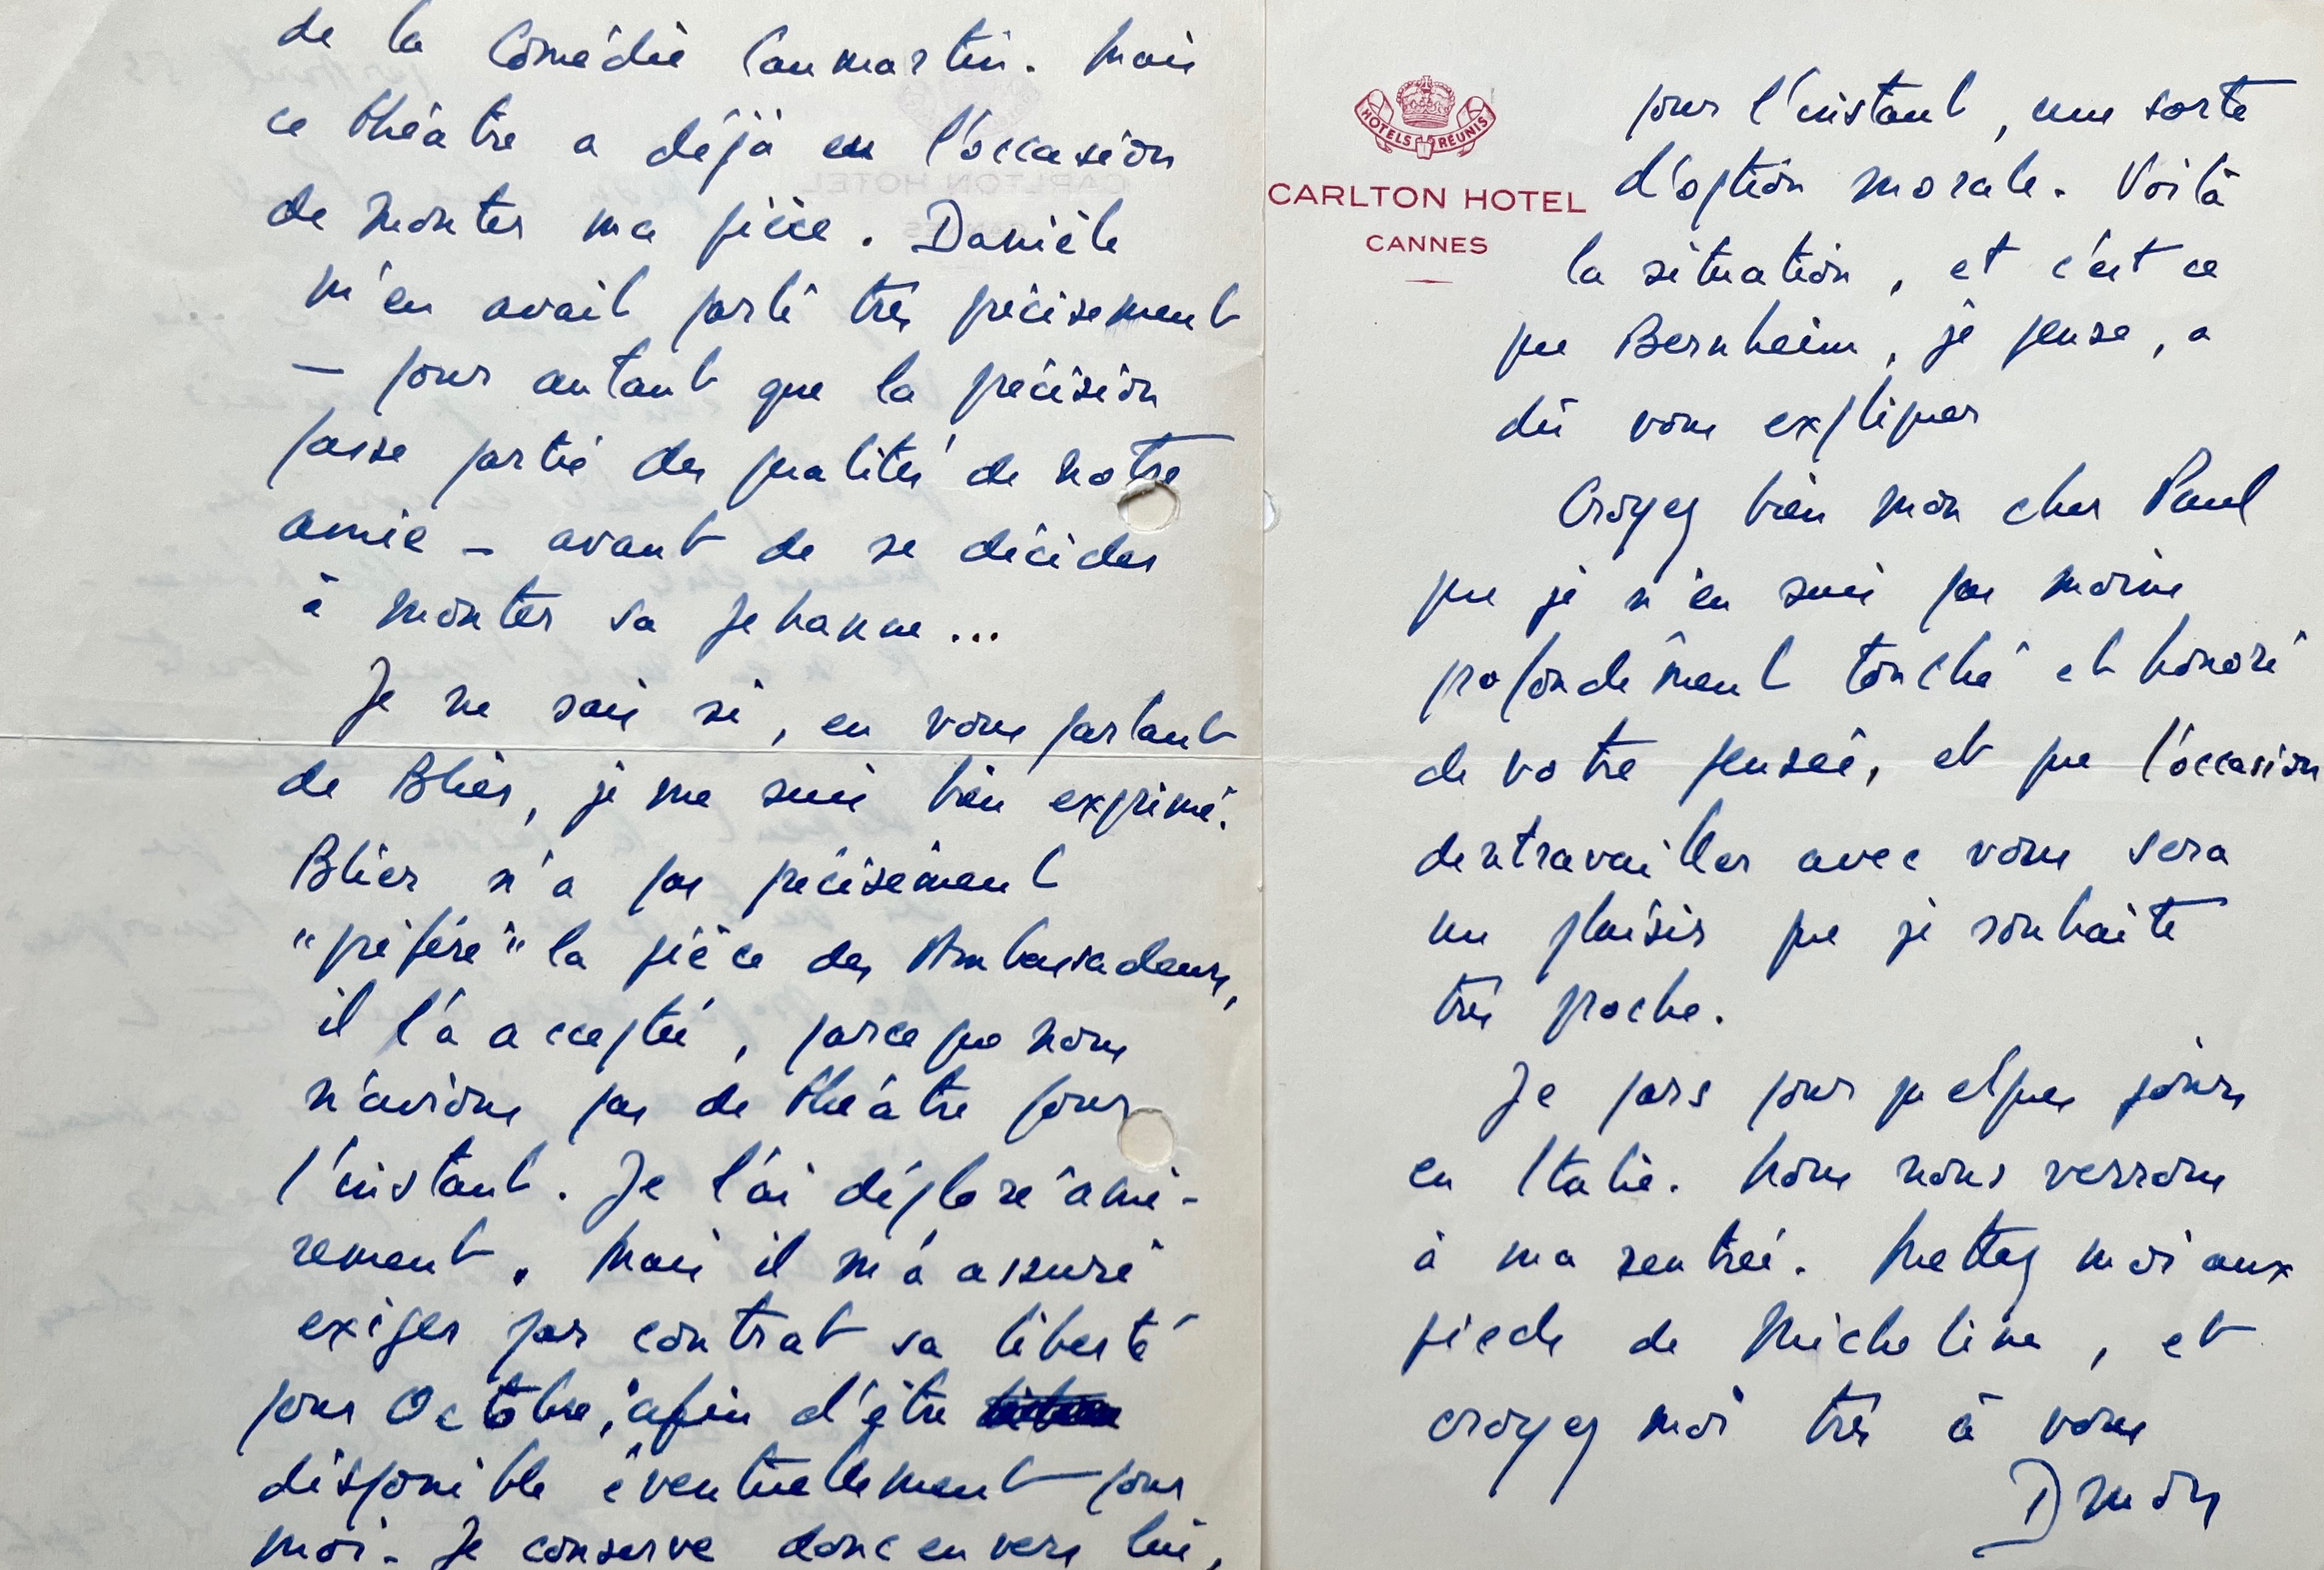 de la Comédie Caumartin. Mais
ce théâtre a déjà eu l'occasion
de monter ma pièce. Danièle
m'en avait parlé très précisement
— pour autant que la précision
fasse partie des qualités de notre
amie — avant de se décider
à monter sa Jehanne...
Je ne sais si, en vous parlant
de Blier, je me suis bien exprimé.
Blier n'a pas précisément
"préféré" la pièce des Ambassadeurs,
il l'a acceptée, parce que nous
n'avions pas de théâtre pour
l'instant. Je l'ai déploré amè-
rement. Mais il m'a assuré
exiger par contrat sa liberté
pour Octobre, afin d'être
disponible éventuellement pour
moi. Je conserve donc envers lui,
HOTELS RÉUNIS
CARLTON HOTEL
CANNES
pour l'instant, une sorte
d'option morale. Voilà
la situation, et c'est ce
que Bernheim, je pense, a
dû vous expliquer
Croyez bien mon cher Paul
que je n'en suis pas moins
profondément touché et honoré
de votre pensée, et que l'occasion
de travailler avec vous sera
un plaisir que je souhaite
très proche.
Je pars pour quelques jours
en Italie. Nous nous verrons
à ma rentrée. Mettez moi aux
pieds de Micheline, et
croyez moi très à vous